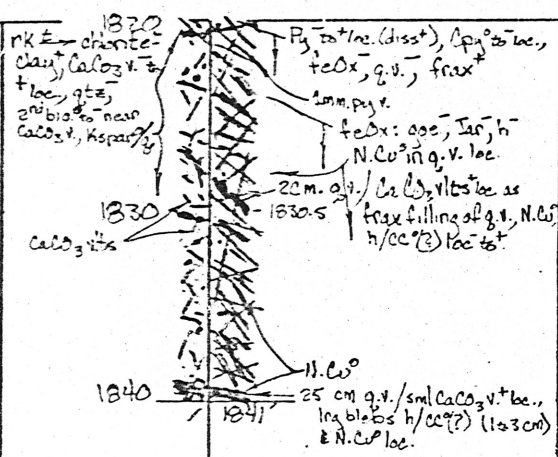 1820
rk ± → chlorite-
clay⁺, CaCO3 v.⁻ to
⁺ loc., qtz⁻,
2nd bio.° to⁻ near
CaCO3 v., Kspar
Py⁻ to⁺ loc. (diss⁺), Cpy° to⁻ loc.,
feOx⁻, q.v.⁻, frax⁺
1mm. py v.
feOx: goe⁻, Jar⁻, h⁻
N.Cu° in q.v. loc.
2cm. q.v./CaCO3 vlts⁺ loc as
1830
1830.5
frax filling of q.v., N.Cu°,
h/CC°(?) loc⁻ to⁺.
CaCO3 vlts
N.Cu°
1840
1841'
25 cm q.v./sml CaCO3 v.⁺ loc.,
lrg blebs h/CC°(?) (1±3cm)
& N.Cu° loc.